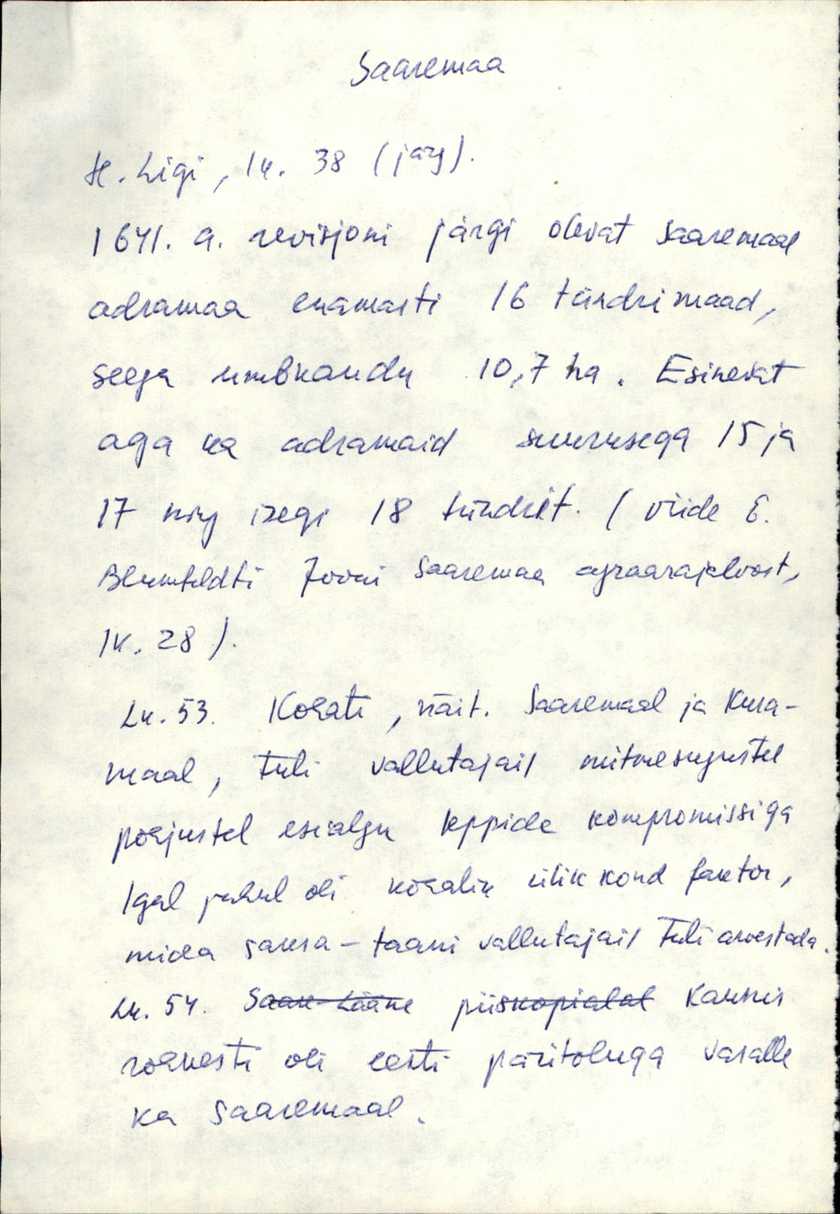 Saaremaa
H. Ligi, lk. 38 (järg).
1641. a. revisjoni järgi olevat Saaremaal
adramaa enamasti 16 tündrimaad,
seega umbkaudu 10,7 ha. Esinevat
aga ka adramaid suurusega 15 ja
17 ning isegi 18 tündrit. (viide E.
Blumfeldti Jooni Saaremaa agraarajaloost,
lk. 28).
Lk. 53. Kohati, näit. Saaremaal ja Kura-
maal, tuli vallutajail mitmesugustel
põhjustel esialgu leppida kompromissiga
Igal juhul oli kohalik ülikkond faktor,
mida saksa-taani vallutajail tuli arvestada.
Lk. 54. Saare-Lääne piiskopialal Kaunis
rohkesti oli eesti päritoluga vasalle
ka Saaremaal.